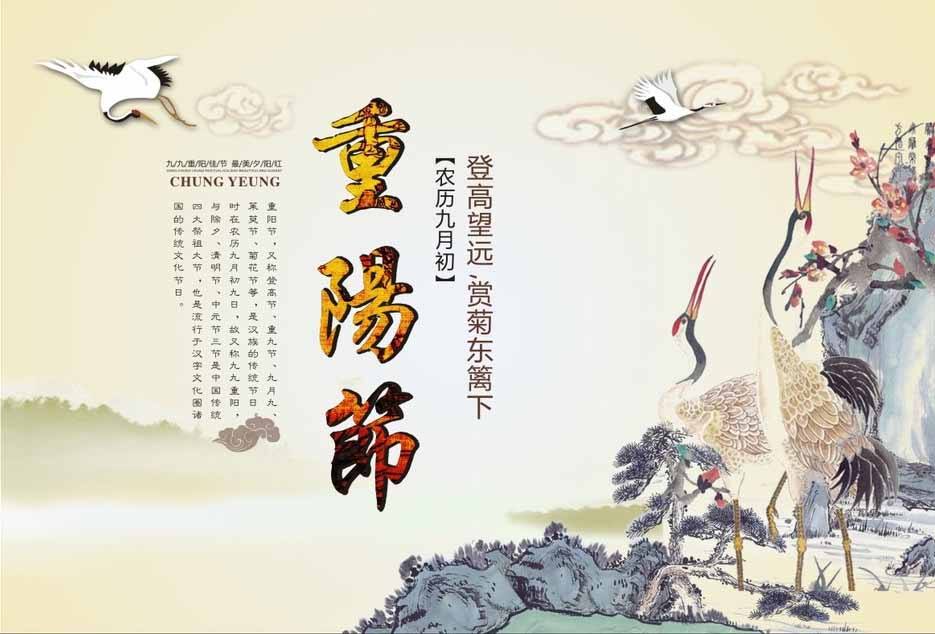 九/九/重/阳/佳/节 最/美/夕/阳/红
CHUNG YEUNG
重阳节，又称登高节、重九节、九月九、
茱萸节、菊花节等，是汉族的传统节日，
时在农历九月初九日，故又称九九重阳，
与除夕、清明节、中元节三节是中国传统
四大祭祖大节，也是流行于汉字文化圈诸
国的传统文化节日。
重陽節
【农历九月初】
登高望远，赏菊东篱下